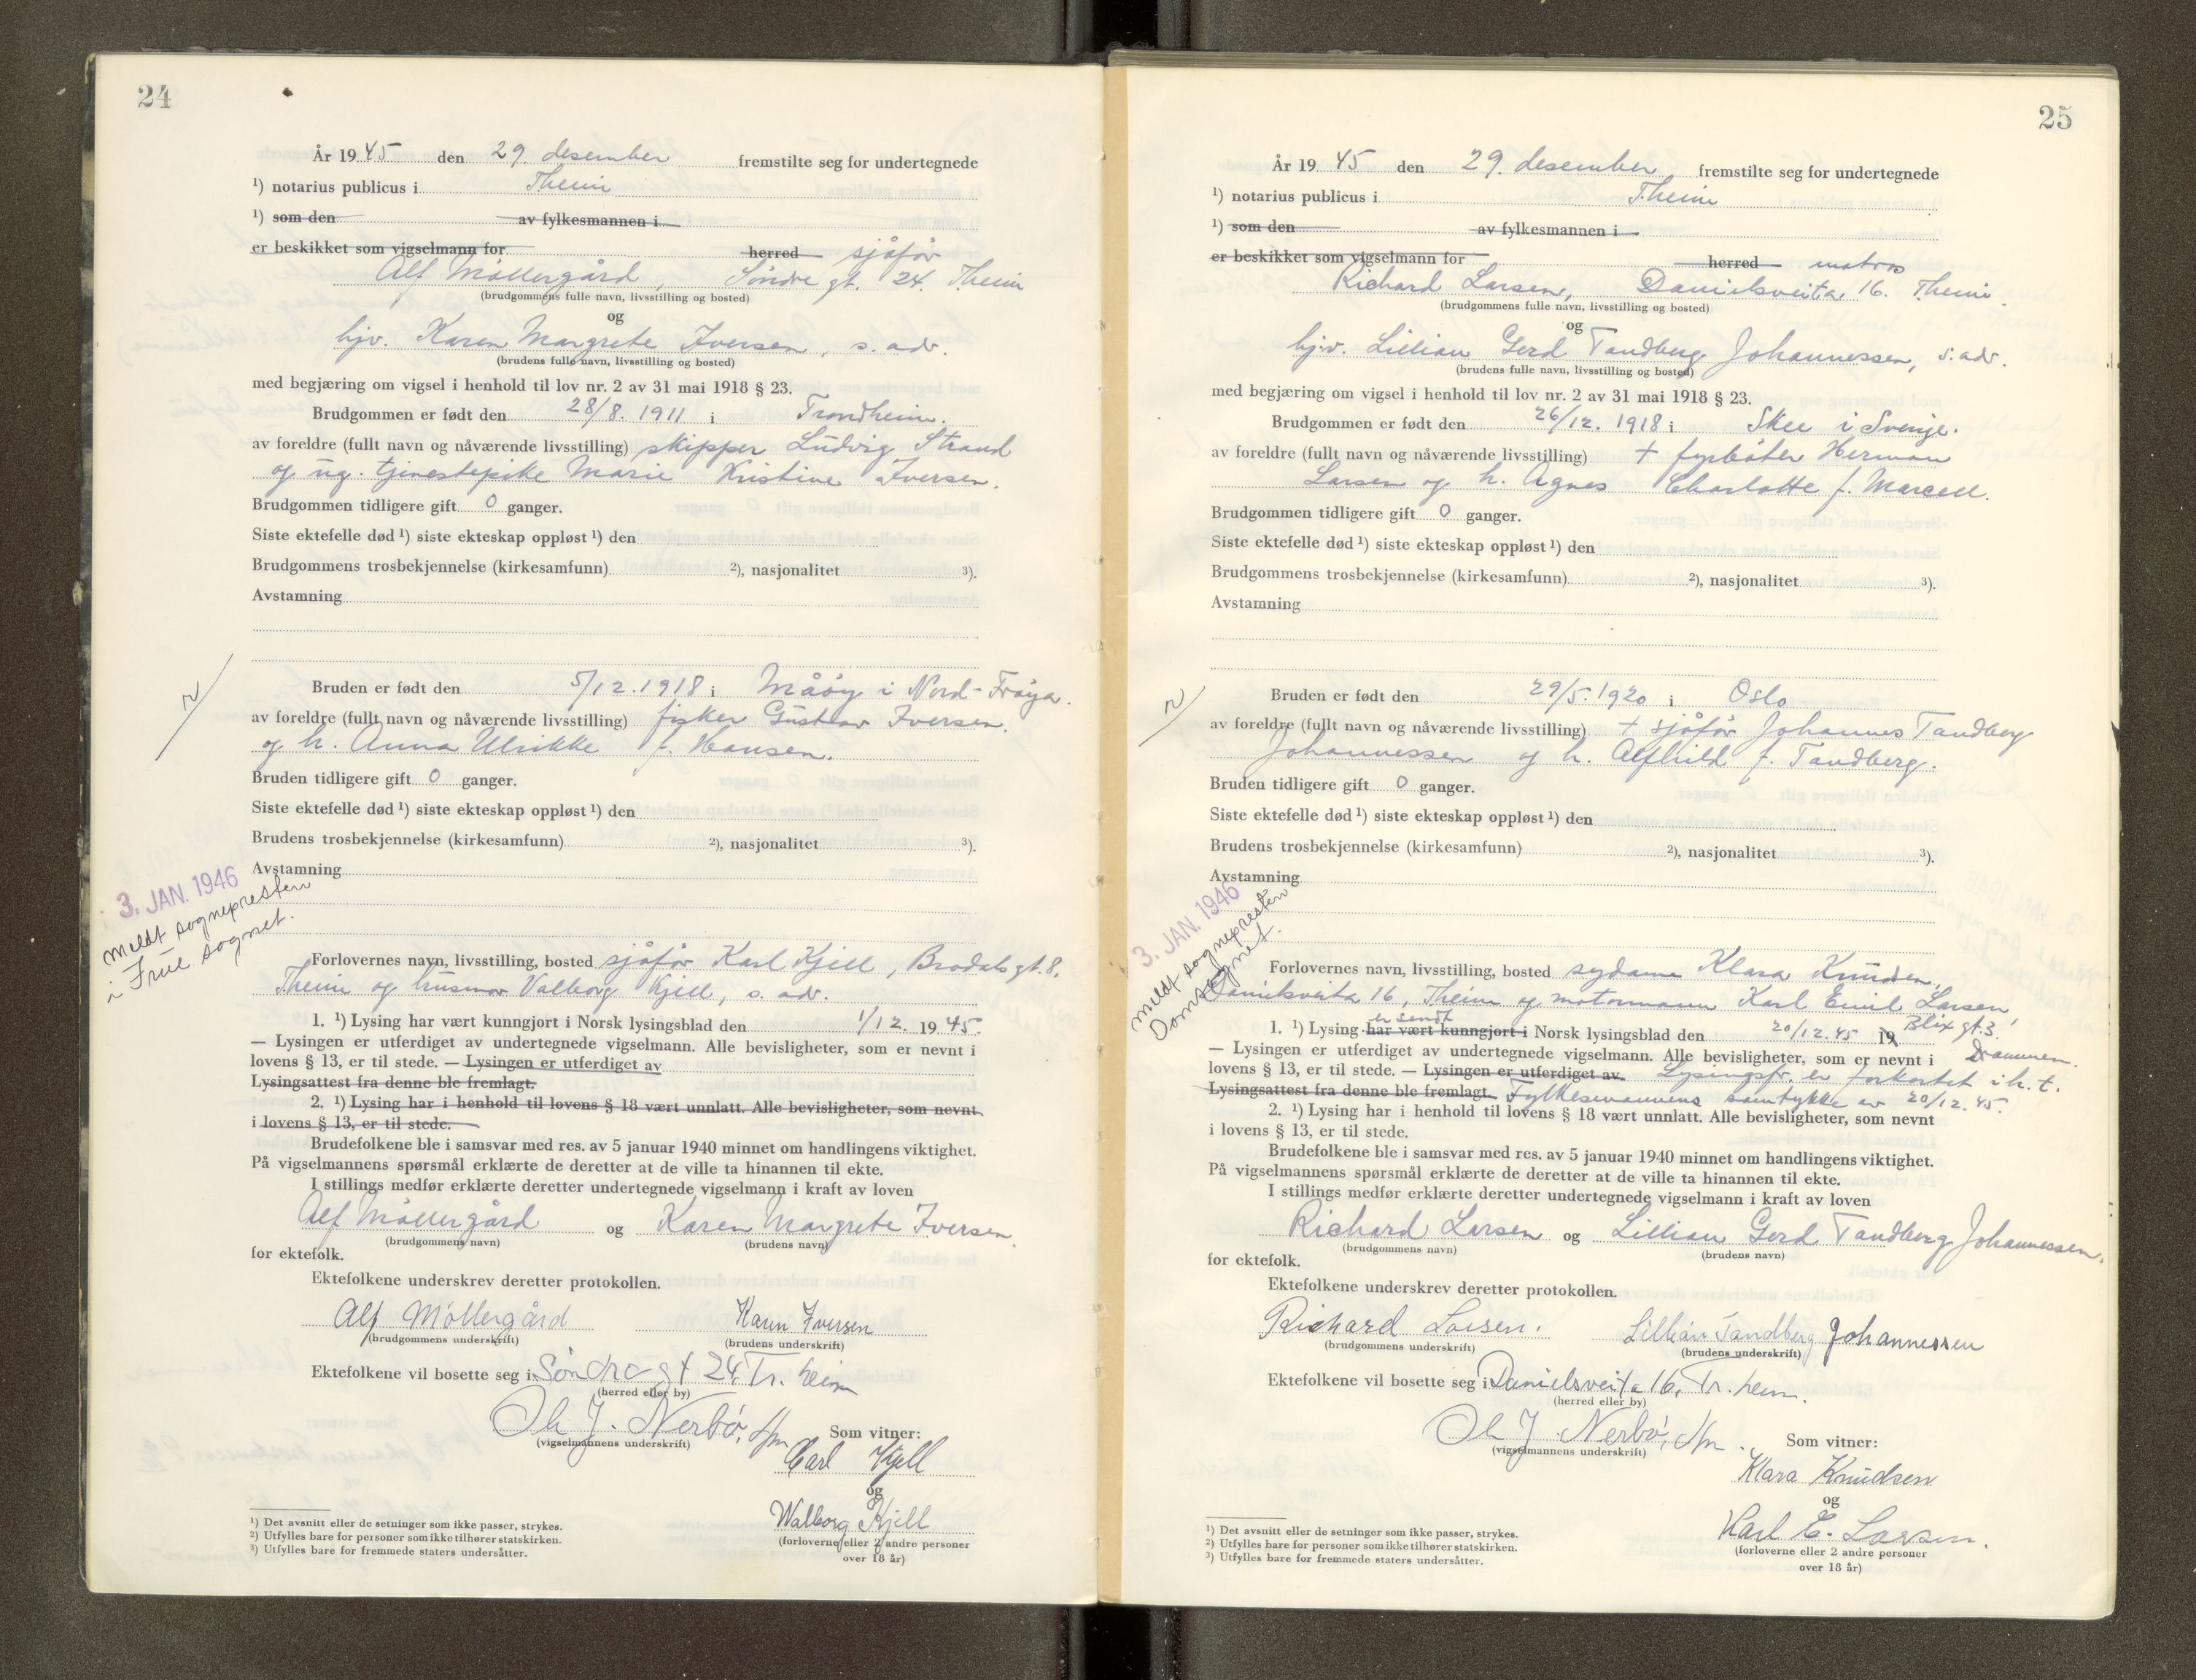 24
År 1945 den 29. desember fremstilte seg for undertegnede
¹) notarius publicus i Theim
¹) som den av fylkesmannen i
er beskikket som vigselmann for herred sjåfør
Alf Möllergård, Söndre gt. 24. Theim
(brudgommens fulle navn, livsstilling og bosted)
og
hjv. Karen Margrete Iversen, s. adr.
(brudens fulle navn, livsstilling og bosted)
med begjæring om vigsel i henhold til lov nr. 2 av 31 mai 1918 § 23.
Brudgommen er født den 28/8. 1911 i Trondheim.
av foreldre (fullt navn og nåværende livsstilling) skipper Ludvig Strand
og ug. tjenestepike Marie Kristine Iversen.
Brudgommen tidligere gift 0 ganger.
Siste ektefelle død ¹) siste ekteskap oppløst ¹) den
Brudgommens trosbekjennelse (kirkesamfunn) ²), nasjonalitet ³).
Avstamning
Bruden er født den 5/12. 1918 i Måöy i Nord-Fröya.
av foreldre (fullt navn og nåværende livsstilling) fisker Gustav Iversen
og h. Anna Ulrikke f. Hansen.
Bruden tidligere gift 0 ganger.
Siste ektefelle død ¹) siste ekteskap oppløst ¹) den
Brudens trosbekjennelse (kirkesamfunn) ²), nasjonalitet ³).
Avstamning
3. JAN. 1946
meldt sognepresten
i Frue sognet.
Forlovernes navn, livsstilling, bosted sjåför Karl Kjell, Brodals gt. 8.
Theim og husmor Valborg Kjell, s. adr.
1. ¹) Lysing har vært kunngjort i Norsk lysingsblad den 1/12. 1945.
— Lysingen er utferdiget av undertegnede vigselmann. Alle bevisligheter, som er nevnt i
lovens § 13, er til stede. — Lysingen er utferdiget av
Lysingsattest fra denne ble fremlagt.
2. ¹) Lysing har i henhold til lovens § 18 vært unnlatt. Alle bevisligheter, som nevnt
i lovens § 13, er til stede.
Brudefolkene ble i samsvar med res. av 5 januar 1940 minnet om handlingens viktighet.
På vigselmannens spørsmål erklærte de deretter at de ville ta hinannen til ekte.
I stillings medfør erklærte deretter undertegnede vigselmann i kraft av loven
Alf Möllergård og Karen Margrete Iversen
(brudgommens navn) (brudens navn)
for ektefolk.
Ektefolkene underskrev deretter protokollen.
Alf Möllergård Karen Iversen
(brudgommens underskrift) (brudens underskrift)
Ektefolkene vil bosette seg i Söndregt 24, Tr. heim
(herred eller by)
Ole J. Nerbö, Som vitner:
(vigselmannens underskrift)
Carl Kjell
og
Walborg Kjell
(forloverne eller 2 andre personer
over 18 år)
¹) Det avsnitt eller de setninger som ikke passer, strykes.
²) Utfylles bare for personer som ikke tilhører statskirken.
³) Utfylles bare for fremmede staters undersåtter.
25
År 1945 den 29. desember fremstilte seg for undertegnede
¹) notarius publicus i Theim
¹) som den av fylkesmannen i
er beskikket som vigselmann for herred matros
Richard Larsen, Danielsveita 16. Theim.
(brudgommens fulle navn, livsstilling og bosted)
og
hjv. Lillian Gerd Tandberg Johannessen, s. adr.
(brudens fulle navn, livsstilling og bosted)
med begjæring om vigsel i henhold til lov nr. 2 av 31 mai 1918 § 23.
Brudgommen er født den 26/12. 1918 i Skee i Sverige.
av foreldre (fullt navn og nåværende livsstilling) + fyrböter Herman
Larsen og h. Agnes Charlotte f. Marcell.
Brudgommen tidligere gift 0 ganger.
Siste ektefelle død ¹) siste ekteskap oppløst ¹) den
Brudgommens trosbekjennelse (kirkesamfunn) ²), nasjonalitet ³).
Avstamning
Bruden er født den 29/5. 1920 i Oslo
av foreldre (fullt navn og nåværende livsstilling) + sjåför Johannes Tandberg
Johannessen og h. Alfhild f. Tandberg.
Bruden tidligere gift 0 ganger.
Siste ektefelle død ¹) siste ekteskap oppløst ¹) den
Brudens trosbekjennelse (kirkesamfunn) ²), nasjonalitet ³).
Avstamning
3. JAN. 1946
meldt sognepresten
Domsognet.
Forlovernes navn, livsstilling, bosted sydame Klara Knudsen,
Danielsveita 16, Theim og motormann Karl Emil Larsen,
Blix gt. 3,
Drammen.
er sendt
1. ¹) Lysing har vært kunngjort i Norsk lysingsblad den 20/12. 45 19
— Lysingen er utferdiget av undertegnede vigselmann. Alle bevisligheter, som er nevnt i
lovens § 13, er til stede. — Lysingen er utferdiget av Lysingsfr. er forkortet i h. t.
Lysingsattest fra denne ble fremlagt. Fylkesmannens samtykke av 20/12. 45.
2. ¹) Lysing har i henhold til lovens § 18 vært unnlatt. Alle bevisligheter, som nevnt
i lovens § 13, er til stede.
Brudefolkene ble i samsvar med res. av 5 januar 1940 minnet om handlingens viktighet.
På vigselmannens spørsmål erklærte de deretter at de ville ta hinannen til ekte.
I stillings medfør erklærte deretter undertegnede vigselmann i kraft av loven
Richard Larsen og Lillian Gerd Tandberg Johannessen.
(brudgommens navn) (brudens navn)
for ektefolk.
Ektefolkene underskrev deretter protokollen.
Richard Larsen. Lillian Tandberg Johannessen
(brudgommens underskrift) (brudens underskrift)
Ektefolkene vil bosette seg i Danielsveita 16, Tr. heim.
(herred eller by)
Ole J Nerbö, Som vitner:
(vigselmannens underskrift)
Klara Knudsen
og
Karl E. Larsen.
(forloverne eller 2 andre personer
over 18 år)
¹) Det avsnitt eller de setninger som ikke passer, strykes.
²) Utfylles bare for personer som ikke tilhører statskirken.
³) Utfylles bare for fremmede staters undersåtter.